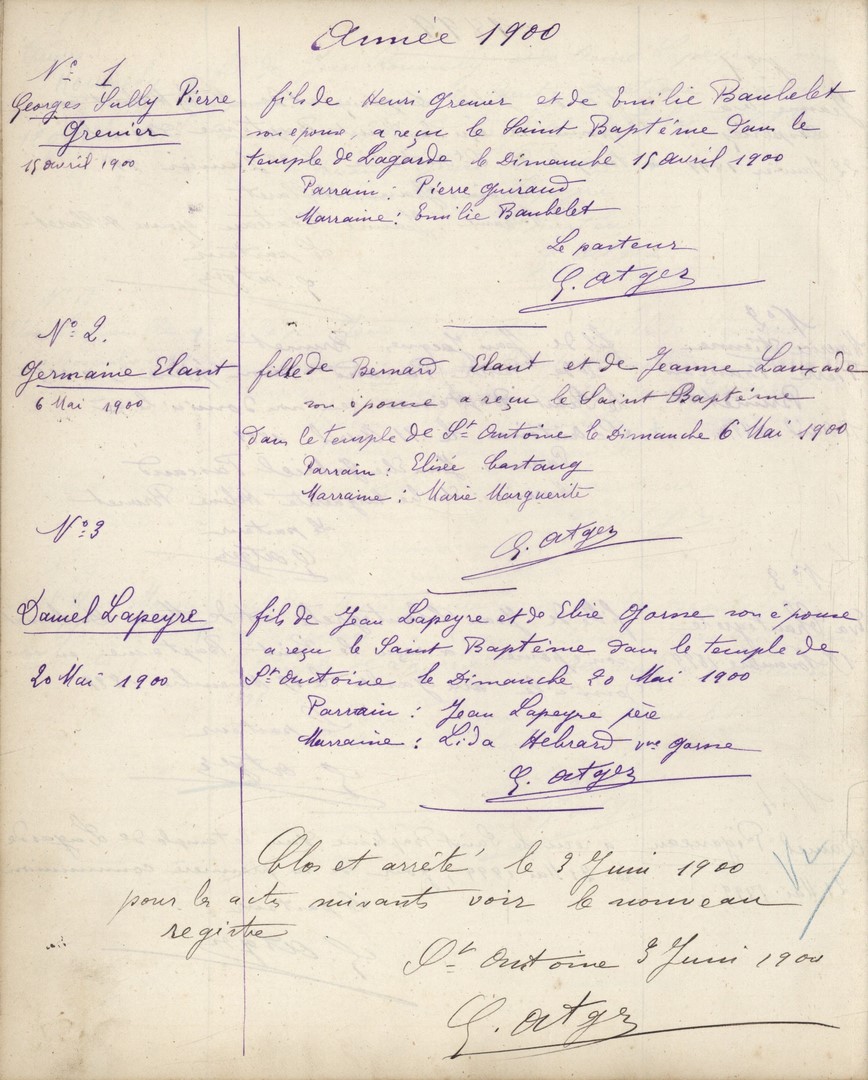 Année 1900
Nº 1
Georges Sully Pierre
Grenier
15 avril 1900
fils de Henri Grenier et de Emilie Baubelet
son épouse, a reçu le Saint Baptême dans le
temple de Lagarde le Dimanche 15 avril 1900
Parrain : Pierre Guiraud
Marraine : Emilie Baubelet
Le pasteur
G. Atger
Nº 2.
Germaine Elant
6 Mai 1900
fille de Bernard Elant et de Jeanne Lauxade
son épouse a reçu le Saint Baptême
dans le temple de St Antoine le Dimanche 6 Mai 1900
Parrain : Elisée Castang
Marraine : Marie Marguerite
G. Atger
Nº 3
Daniel Lapeyre
20 Mai 1900
fils de Jean Lapeyre et de Elise Gorse son épouse
a reçu le Saint Baptême dans le temple de
St Antoine le Dimanche 20 Mai 1900
Parrain : Jean Lapeyre père
Marraine : Lida Hébrard vve Gorse
G. Atger
Clos et arrêté le 3 Juin 1900
pour les actes suivants voir le nouveau
registre
St Antoine 3 Juin 1900
G. Atger